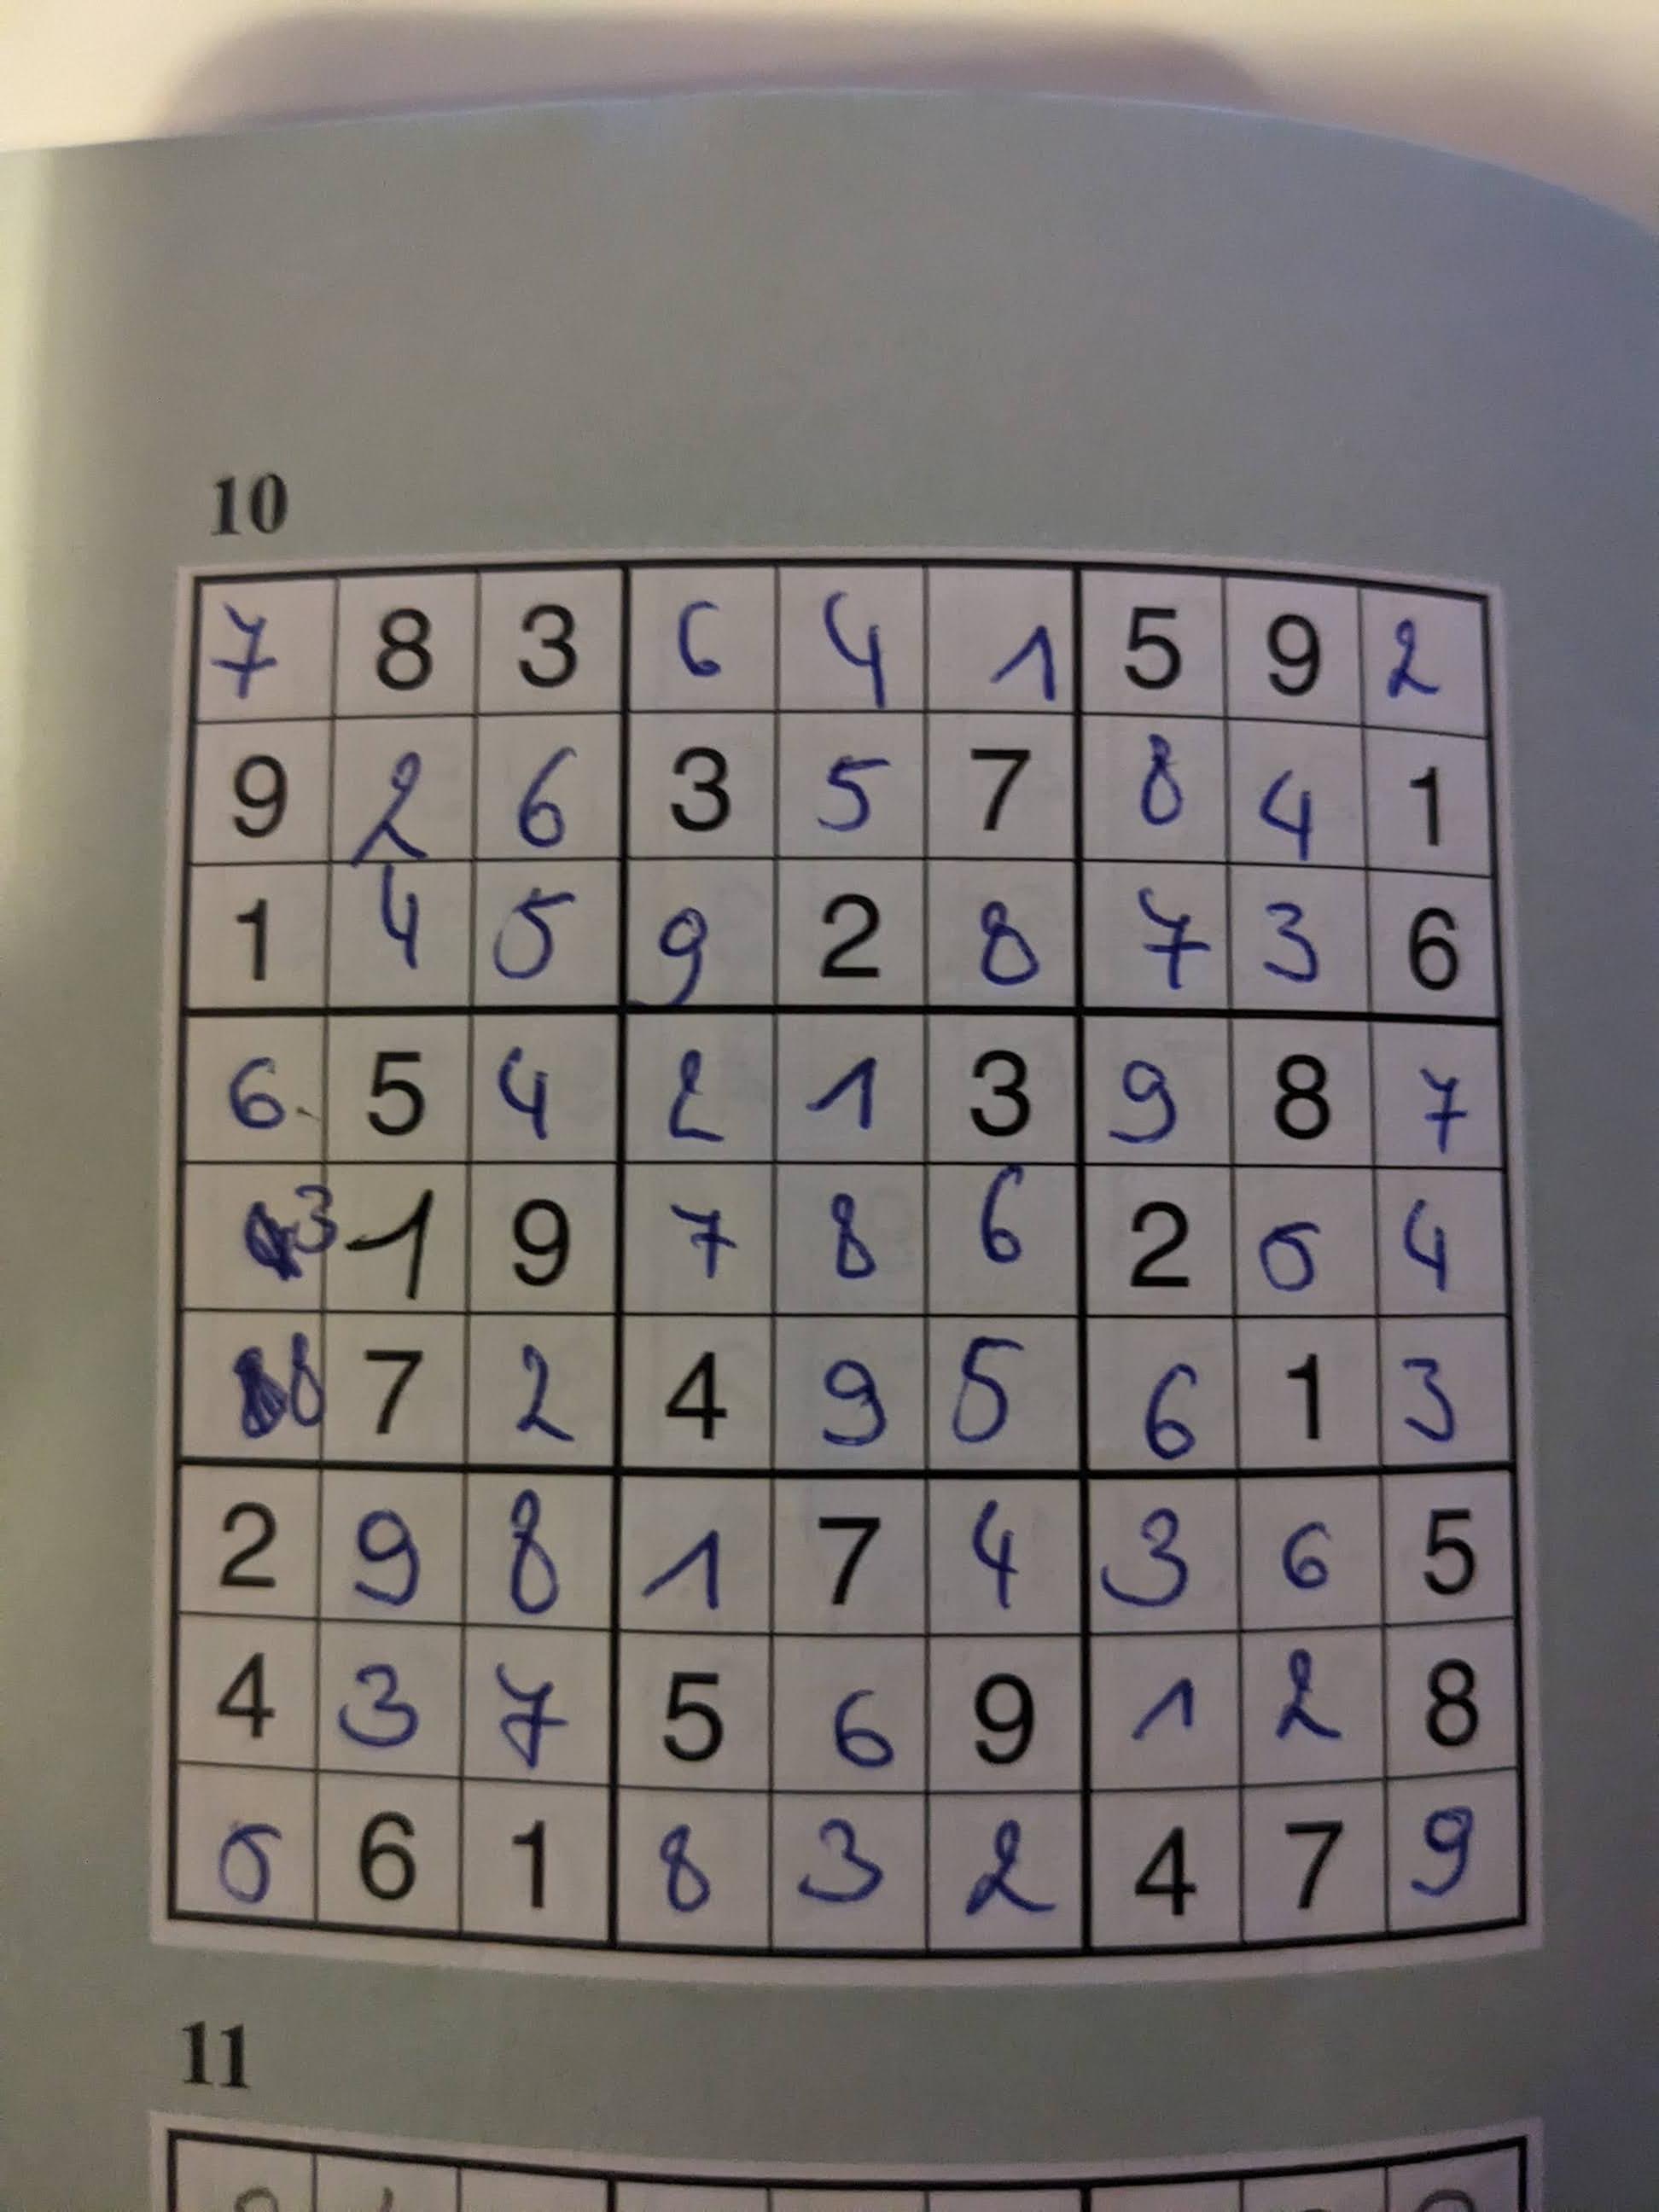 10
7 8 3 6 4 1 5 9 2
9 2 6 3 5 7 8 4 1
1 4 5 9 2 8 7 3 6
6 5 4 2 1 3 9 8 7
3 1 9 7 8 6 2 5 4
8 7 2 4 9 5 6 1 3
2 9 8 1 7 4 3 6 5
4 3 7 5 6 9 1 2 8
5 6 1 8 3 2 4 7 9
11